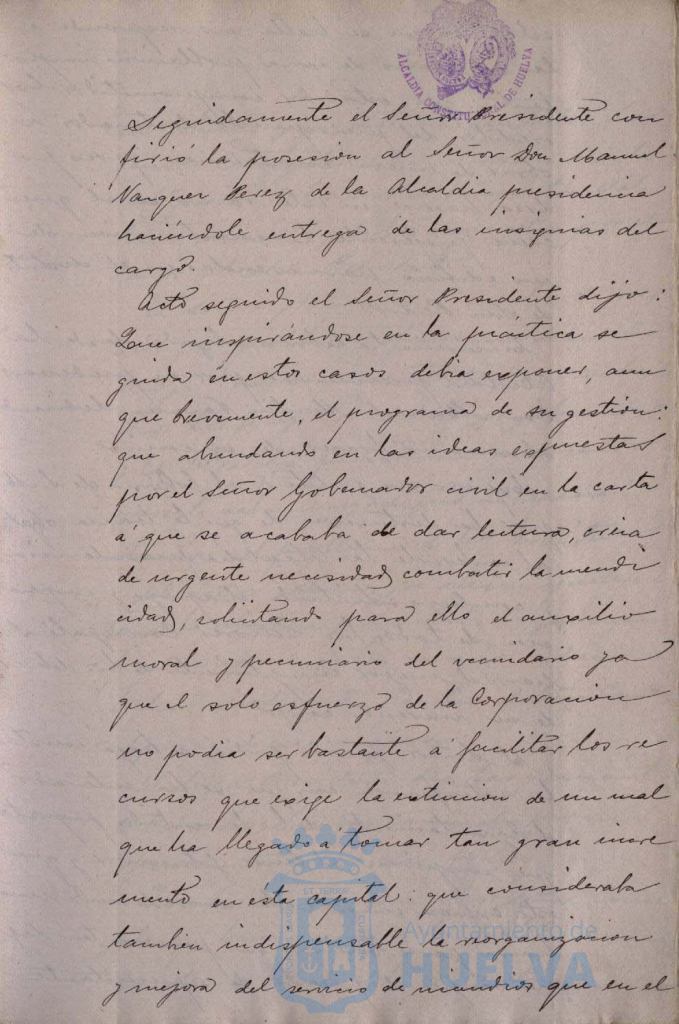 ALCALDIA CONSTITUCIONAL DE HUELVA
Seguidamente el Señor Presidente con
firió la posesion al Señor Don Manuel
Vazquez Perez de la Alcaldia presidencia
haciéndole entrega de las insignias del
cargo.
Acto seguido el Señor Presidente dijo:
Que inspirándose en la práctica se
guida en estos casos debia exponer, aun
que brevemente, el programa de su gestión:
que abundando en las ideas expuestas
por el Señor Gobernador civil en la carta
á que se acababa de dar lectura, creia
de urgente necesidad combatir la mendi
cidad, solicitando para ello el auxilio
moral y pecuniario del vecindario ya
que el solo esfuerzo de la Corporacion
no podia ser bastante á facilitar los re
cursos que exige la extincion de un mal
que ha llegado á tomar tan gran incre
mento en ésta capital: que consideraba
tambien indispensable la reorganizacion
y mejora del servicio de incendios que en el
Ayuntamiento de
HUELVA